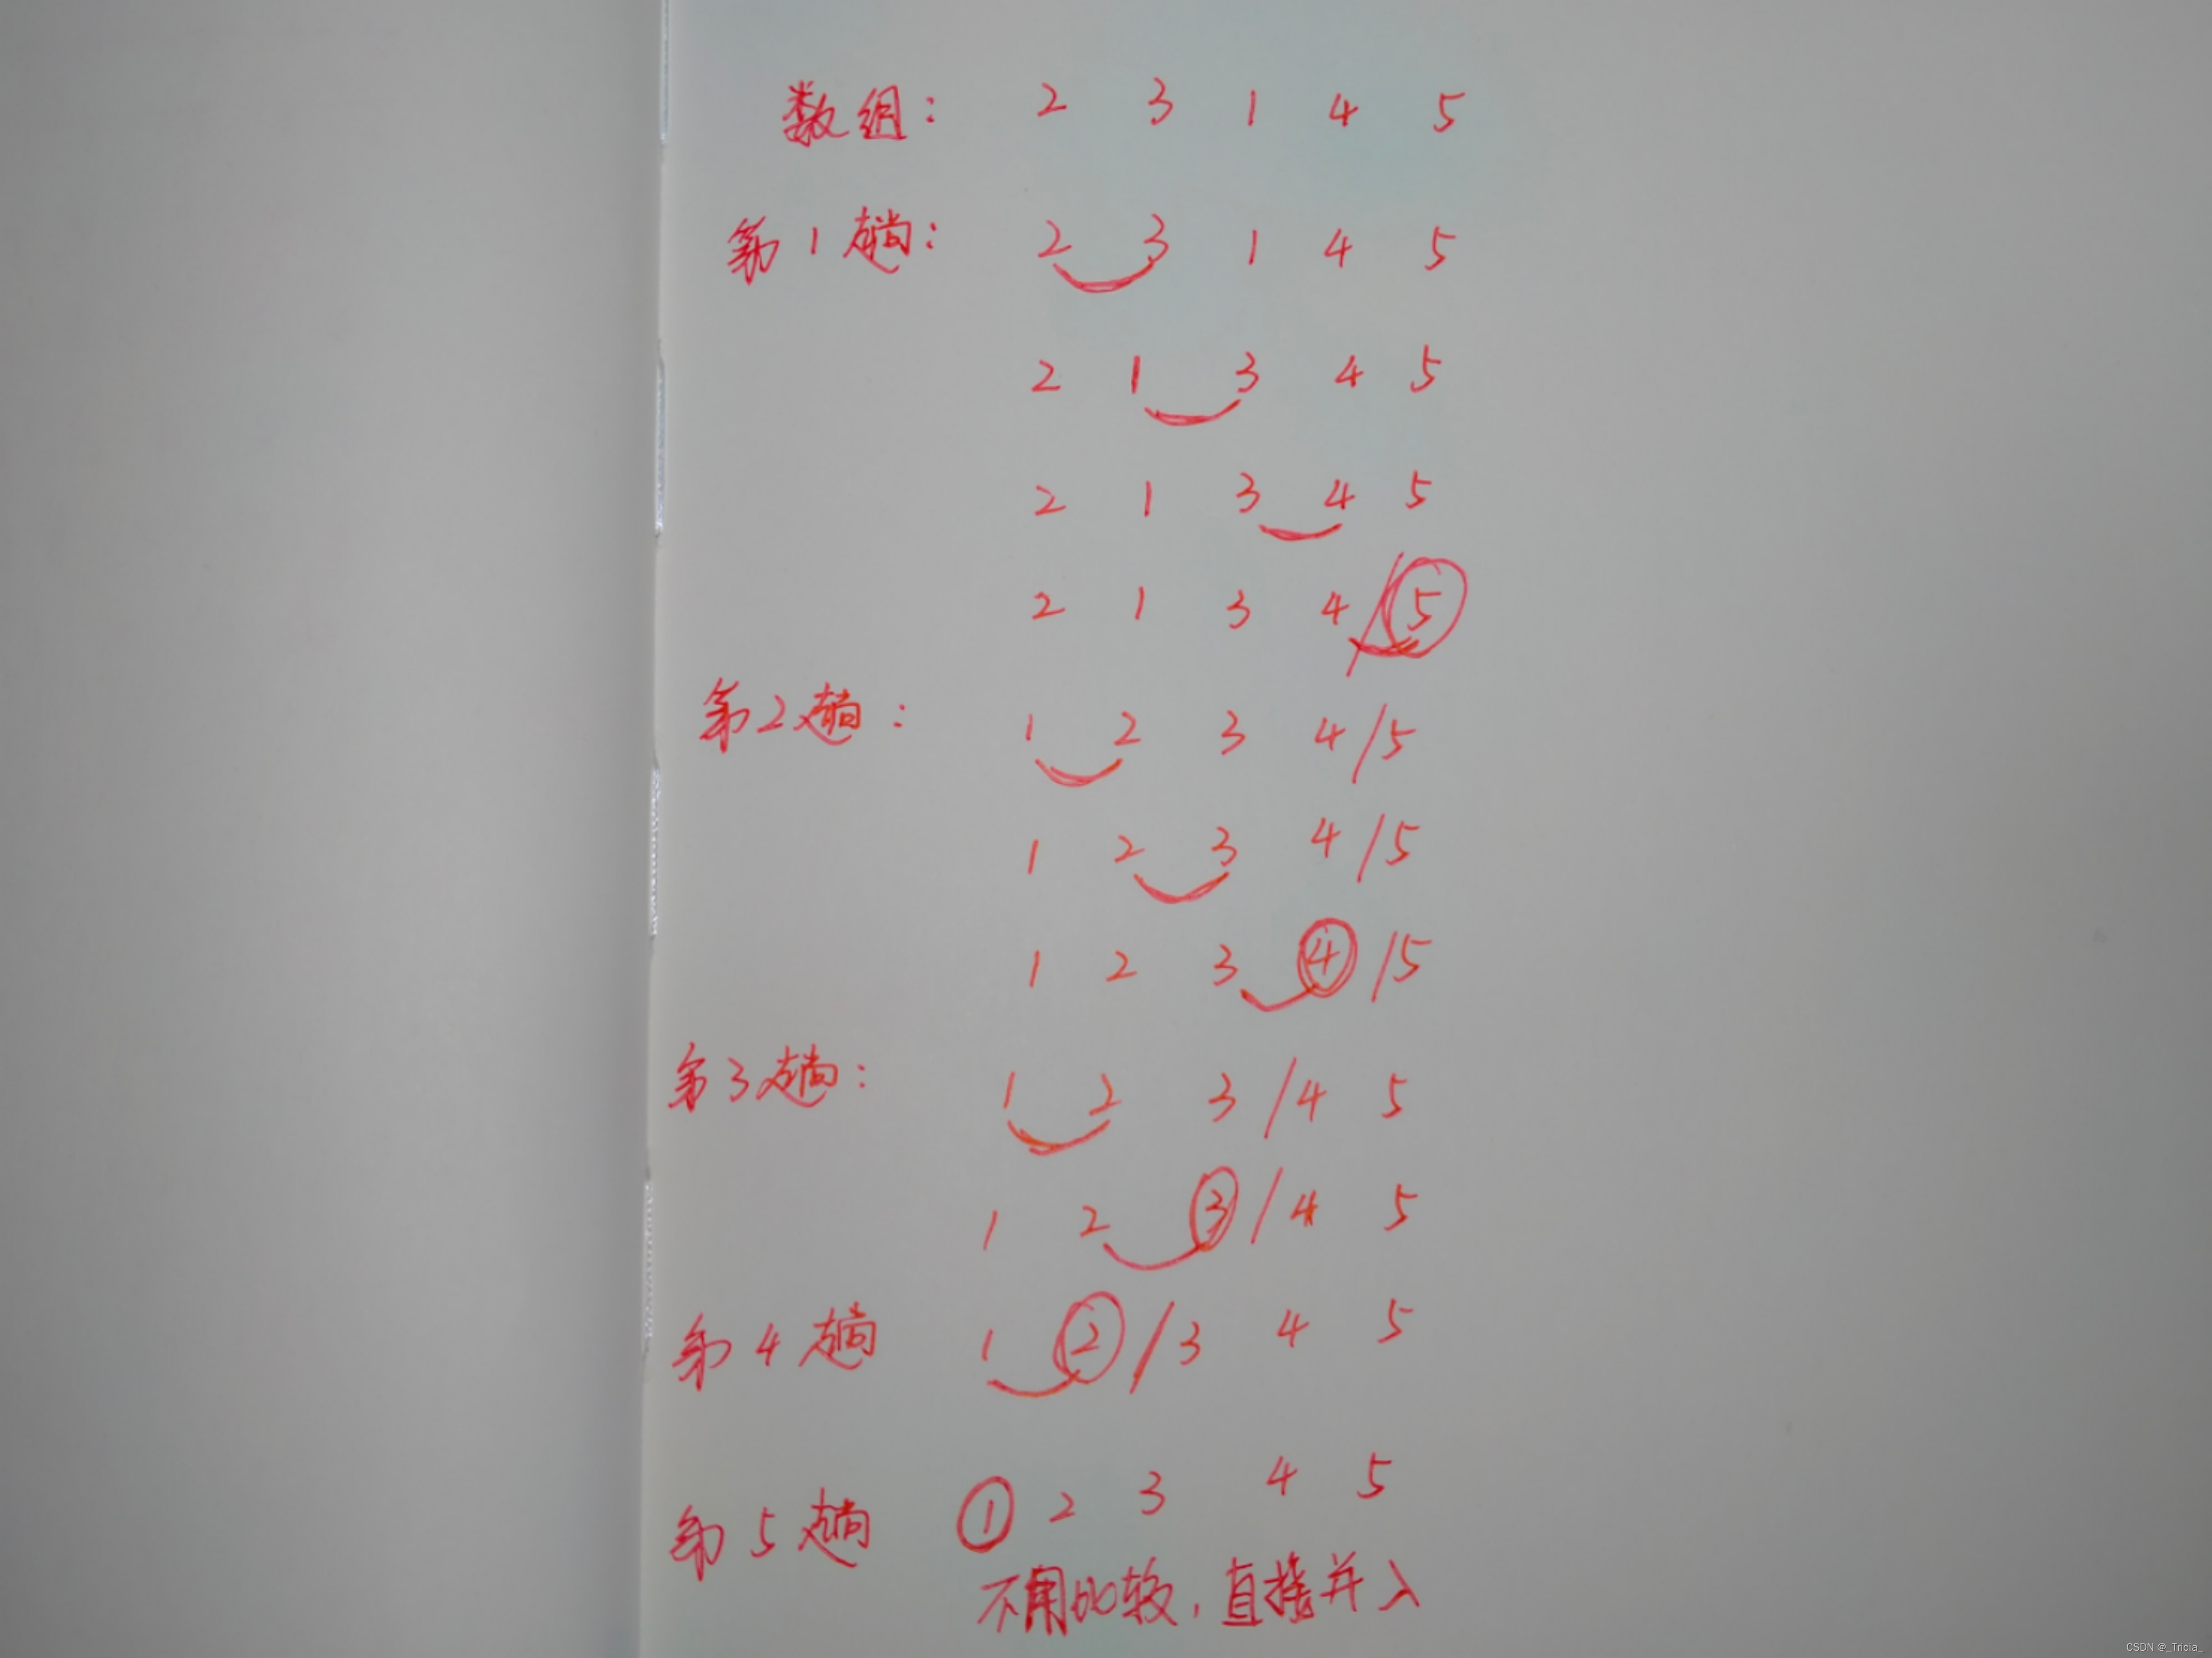 数组： 2 3 1 4 5
第1趟： 2 3 1 4 5
2 1 3 4 5
2 1 3 4 5
2 1 3 4/5
第2趟： 1 2 3 4/5
1 2 3 4/5
1 2 3 4/5
第3趟： 1 2 3/4 5
1 2 3/4 5
第4趟 1 2/3 4 5
第5趟 1 2 3 4 5
不用比较，直接并入
CSDN @_Tricia_